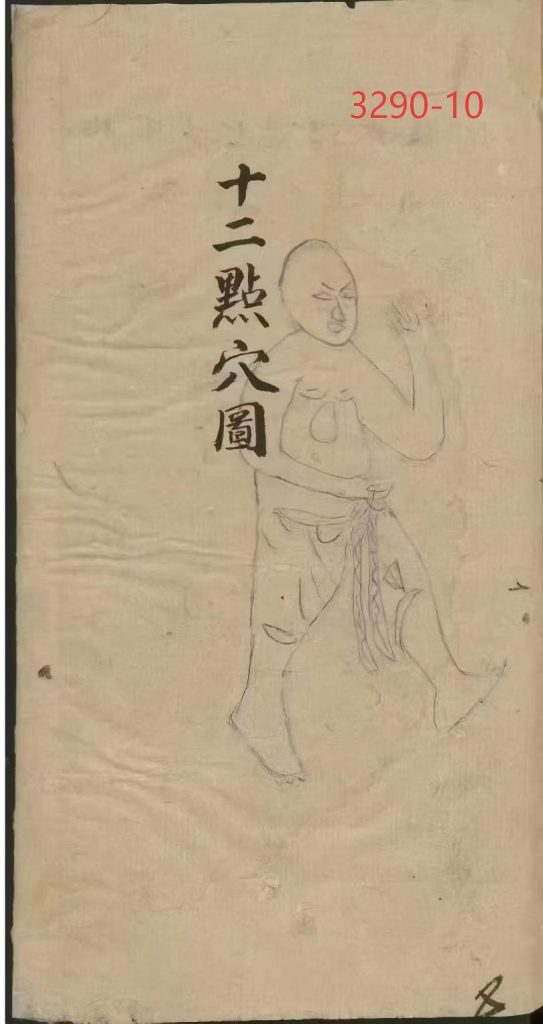 3290-10
十二點穴圖